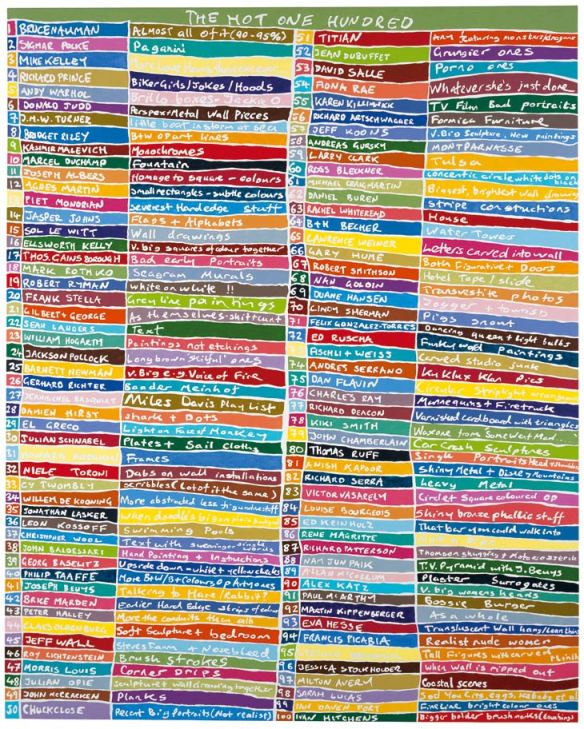 THE HOT ONE HUNDRED
1 BRUCE NAUMAN ALMOST all of it (90-95%)
2 SIGMAR POLKE Paganini
3 MIKE KELLEY
4 RICHARD PRINCE Biker Girls/Jokes/Hoods
5 ANDY WARHOL Brillo boxes - Jackie O
6 DONALD JUDD Perspex/Metal Wall Pieces
7 J.M.W. TURNER little boat in storm at sea
8 BRIDGET RILEY B+W OP art lines
9 KASIMIR MALEVICH Monochromes
10 MARCEL DUCHAMP Fountain
11 JOSEPH ALBERS Homage to Square - colours
12 AGNES MARTIN Small rectangles - subtle colours
13 PIET MONDRIAN Severest Hard edge stuff
14 JASPER JOHNS Flags + Alphabets
15 SOL LE WITT Wall drawings
16 ELLSWORTH KELLY V. big squares of colour together
17 THOS. GAINSBOROUGH Bad early Portraits
18 MARK ROTHKO Seagram Murals
19 ROBERT RYMAN white on white !!
20 FRANK STELLA Grey line paintings
21 GILBERT + GEORGE As themselves - shit + cunt
22 SEAN LANDERS Text
23 WILLIAM HOGARTH Paintings not etchings
24 JACKSON POLLOCK Long brown skilful ones
25 BARNETT NEWMAN V. Big e.g. Voice of Fire
26 GERHARD RICHTER Baader Meinhof
27 JEAN MICHEL BASQUIAT Miles Davis Play List
28 DAMIEN HIRST shark + Dots
29 EL GRECO Light on Face of Monkey
30 JULIAN SCHNABEL Plates + Sail cloths
31 Frames
32 NIELE TORONI Dabs on wall installations
33 CY TWOMBLY scribbles (lot of it the same)
34 WILLEM DE KOONING More abstracted less figurative stuff
35 JONATHAN LASKER When doodle's big on plain background
36 LEON KOSSOFF Swimming Pools
37 CHRISTOPHER WOOL Text with swearing single words
38 JOHN BALDESSARI Hand Painting + Instructions
39 GEORG BASELITZ Upside down white + yellow
40 PHILIP TAAFFE More B+W/B+Colour OP Art ones
41 JOSEPH BEUYS Talking to Hare/Rabbit?
42 BRICE MARDEN Earlier Hard Edge strips of colour
43 PETER HALLEY More the conduits than cells
44 CLAES OLDENBURG Soft Sculpture + bedroom
45 JEFF WALL Steves Farm + Nosebleed
46 ROY LICHTENSTEIN Brush strokes
47 MORRIS LOUIS Corner Drips
48 JULIAN OPIE Sculpture + wall drawing together
49 JOHN McCRACKEN Planks
50 CHUCK CLOSE Recent Big portraits (Not realist)
51 TITIAN Any featuring monsters/dragons
52 JEAN DUBUFFET Grungier ones
53 DAVID SALLE Porno ones
54 FIONA RAE Whatever she's just done
55 KAREN KILIMNIK TV Film Bad portraits
56 RICHARD ARTSCHWAGER Formica Furniture
57 JEFF KOONS V. Big Sculpture, New paintings
58 ANDREAS GURSKY MONTPARNASSE
59 LARRY CLARK Tulsa
60 ROSS BLECKNER concentric circle white dots on black
61 MICHAEL CRAIG MARTIN Biggest, brightest wall drawings
62 DANIEL BUREN Stripe constructions
63 RACHEL WHITEREAD House
64 B+H BECHER Water Towers
65 LAWRENCE WEINER Letters carved into wall
66 GARY HUME Both Figurative + Doors
67 ROBERT SMITHSON Hotel Tape/slide
68 NAN GOLDIN Transvestite photos
69 DUANE HANSEN Jogger + tourists
70 CINDY SHERMAN Pigs snout
71 FELIX GONZALEZ-TORRES Dancing queen + light bulbs
72 ED RUSCHA Funky word Paintings
73 FISCHLI + WEISS Carved studio junk
74 ANDRES SERRANO Ku Klux Klan Pics
75 DAN FLAVIN Circular striplight arrangements
76 CHARLES RAY Mannequins + Firetruck
77 RICHARD DEACON Varnished cardboard with triangles
78 KIKI SMITH Wax one from Somerset Mad...
79 JOHN CHAMBERLAIN Car Crash Sculptures
80 THOMAS RUFF Single Portraits Head + Shoulders
81 ANISH KAPOOR Shiny Metal + Disley Mountains
82 RICHARD SERRA Heavy Metal
83 VICTOR VASARELY Circlet Square coloured OP
84 LOUISE BOURGEOIS Shiny bronze phallic stuff
85 ED KEINHOLZ That bar you could walk into
86 RENE MAGRITTE
87 RICHARD PATTERSON Thomson
88 NAM JUN PAIK T.V. Pyramid with J. Beuys
89 ALLAN McCOLLUM Plaster Surrogates
90 ALEX KATZ V. big womens heads
91 PAUL McCARTHY Bossie Burger
92 MARTIN KIPPENBERGER As a whole
93 EVA HESSE Translucent Wall
94 FRANCIS PICABIA Realist nude women
95 STEPHAN BALKENHOL Tall Figures with carved Plinth
96 JESSICA STOCKHOLDER When wall is ripped out
97 MILTON AVERY Coastal scenes
98 SARAH LUCAS Sod You Gits, eggs, Kebab et al
99 IAN DAVENPORT Fine Line bright colour ones
100 IVAN HITCHENS Bigger bolder brush marks